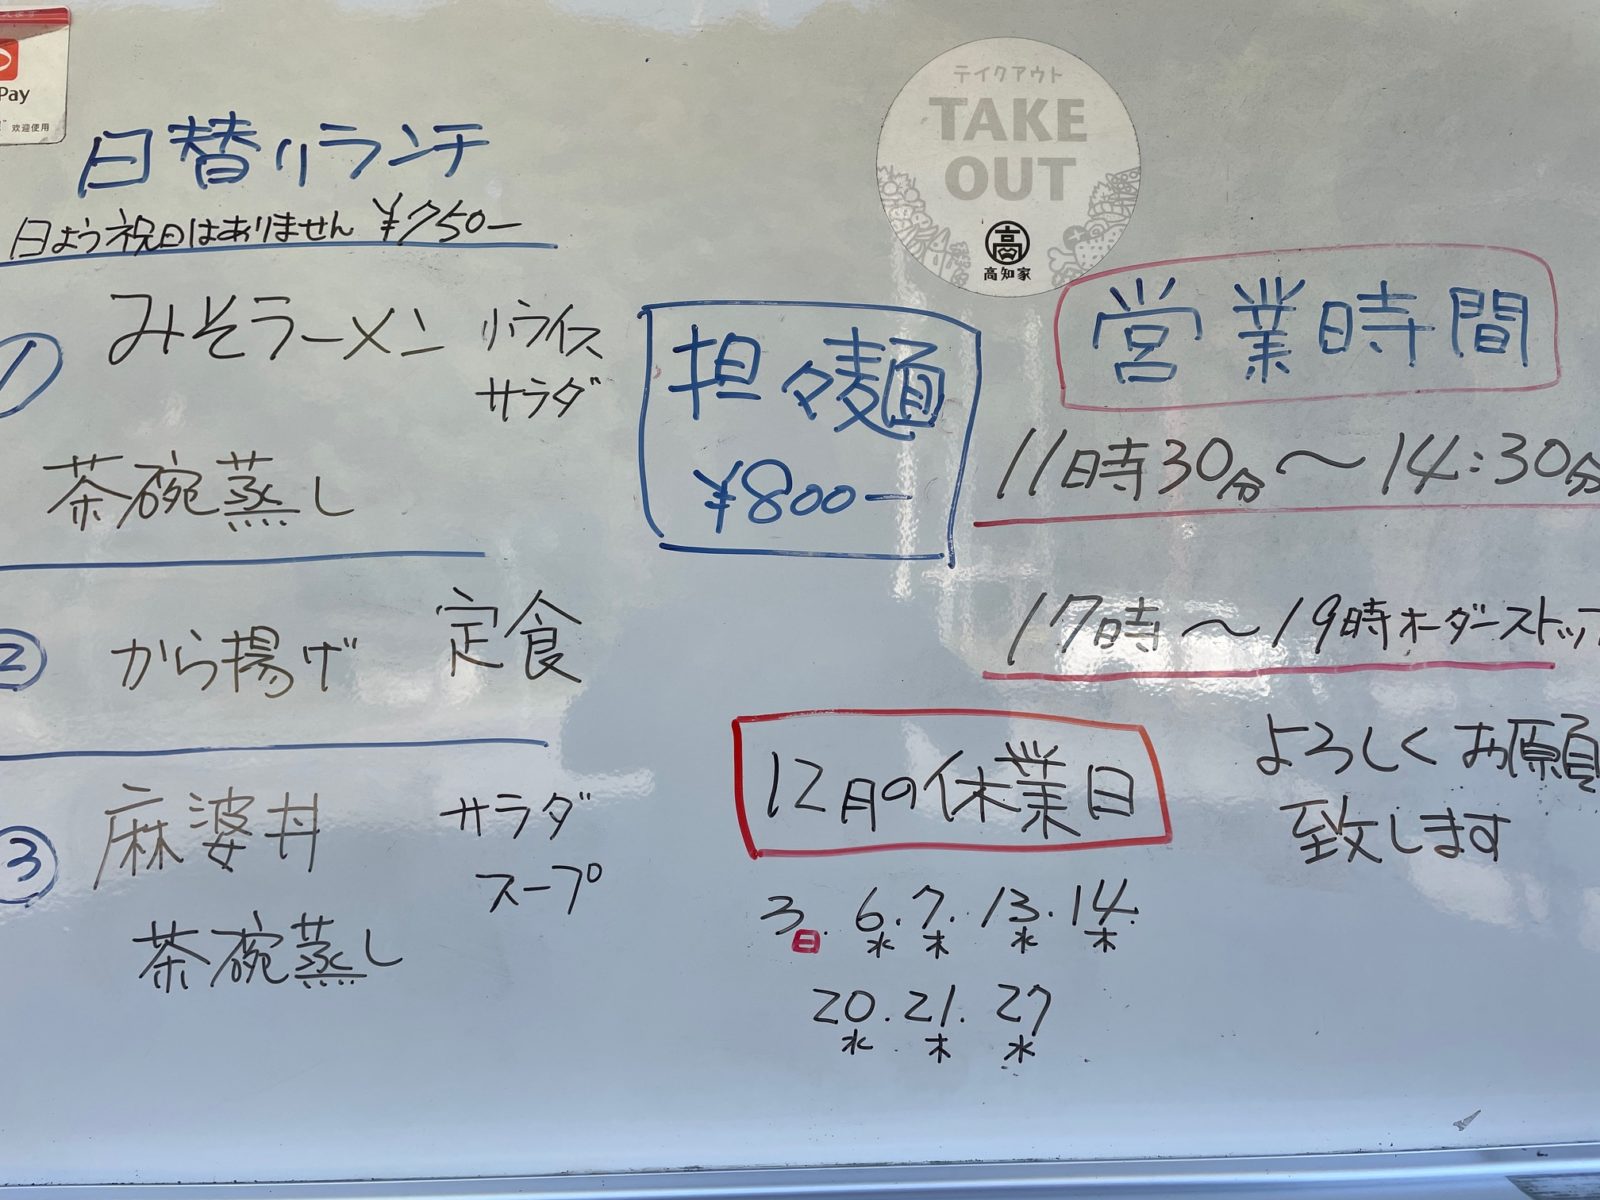 Pay
欢迎使用
日替りランチ
日よう祝日はありません ¥750ー
1 みそラーメン 小ライス
サラダ
茶碗蒸し
2 から揚げ 定食
3 麻婆丼 サラダ
スープ
茶碗蒸し
担々麺
¥800ー
テイクアウト
TAKE
OUT
高
高知家
営業時間
11時30分〜14:30分
17時〜19時オーダーストップ
よろしくお願
致します
12月の休業日
3.6.7.13.14.
日 水 木 水 木
20.21.27
水 木 水